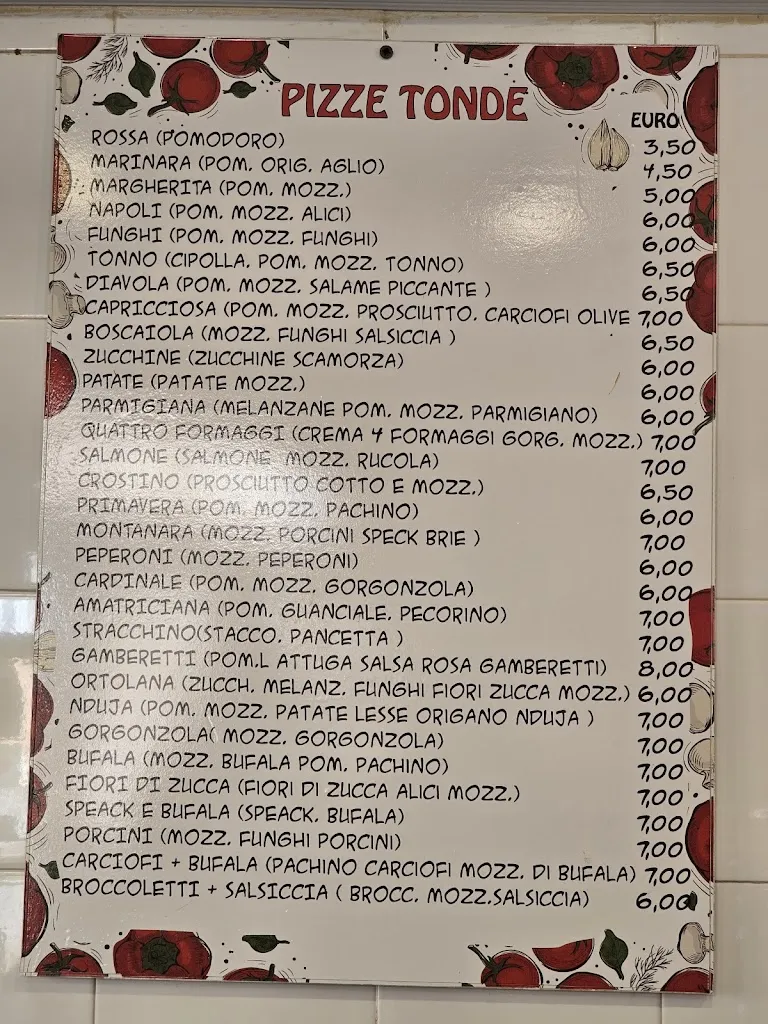 PIZZE TONDE
EURO
ROSSA (POMODORO) 3,50
MARINARA (POM. ORIG. AGLIO) 4,50
MARGHERITA (POM. MOZZ.) 5,00
NAPOLI (POM. MOZZ. ALICI) 6,00
FUNGHI (POM. MOZZ. FUNGHI) 6,00
TONNO (CIPOLLA. POM. MOZZ. TONNO) 6,50
DIAVOLA (POM. MOZZ. SALAME PICCANTE ) 6,50
CAPRICCIOSA (POM. MOZZ. PROSCIUTTO. CARCIOFI OLIVE 7,00
BOSCAIOLA (MOZZ. FUNGHI SALSICCIA ) 6,50
ZUCCHINE (ZUCCHINE SCAMORZA) 6,00
PATATE (PATATE MOZZ.) 6,00
PARMIGIANA (MELANZANE POM. MOZZ. PARMIGIANO) 6,00
QUATTRO FORMAGGI (CREMA 4 FORMAGGI GORG. MOZZ.) 7,00
SALMONE (SALMONE MOZZ. RUCOLA) 7,00
CROSTINO (PROSCIUTTO COTTO E MOZZ.) 6,50
PRIMAVERA (POM. MOZZ. PACHINO) 6,00
MONTANARA (MOZZ. PORCINI SPECK BRIE ) 7,00
PEPERONI (MOZZ. PEPERONI) 6,00
CARDINALE (POM. MOZZ. GORGONZOLA) 6,00
AMATRICIANA (POM. GUANCIALE. PECORINO) 7,00
STRACCHINO(STACCO. PANCETTA ) 7,00
GAMBERETTI (POM.L ATTUGA SALSA ROSA GAMBERETTI) 8,00
ORTOLANA (ZUCCH. MELANZ. FUNGHI FIORI ZUCCA MOZZ.) 6,00
NDUJA (POM. MOZZ. PATATE LESSE ORIGANO NDUJA ) 7,00
GORGONZOLA( MOZZ. GORGONZOLA) 7,00
BUFALA (MOZZ. BUFALA POM. PACHINO) 7,00
FIORI DI ZUCCA (FIORI DI ZUCCA ALICI MOZZ.) 7,00
SPEACK E BUFALA (SPEACK. BUFALA) 7,00
PORCINI (MOZZ. FUNGHI PORCINI) 7,00
CARCIOFI + BUFALA (PACHINO CARCIOFI MOZZ. DI BUFALA) 7,00
BROCCOLETTI + SALSICCIA ( BROCC. MOZZ.SALSICCIA) 6,00